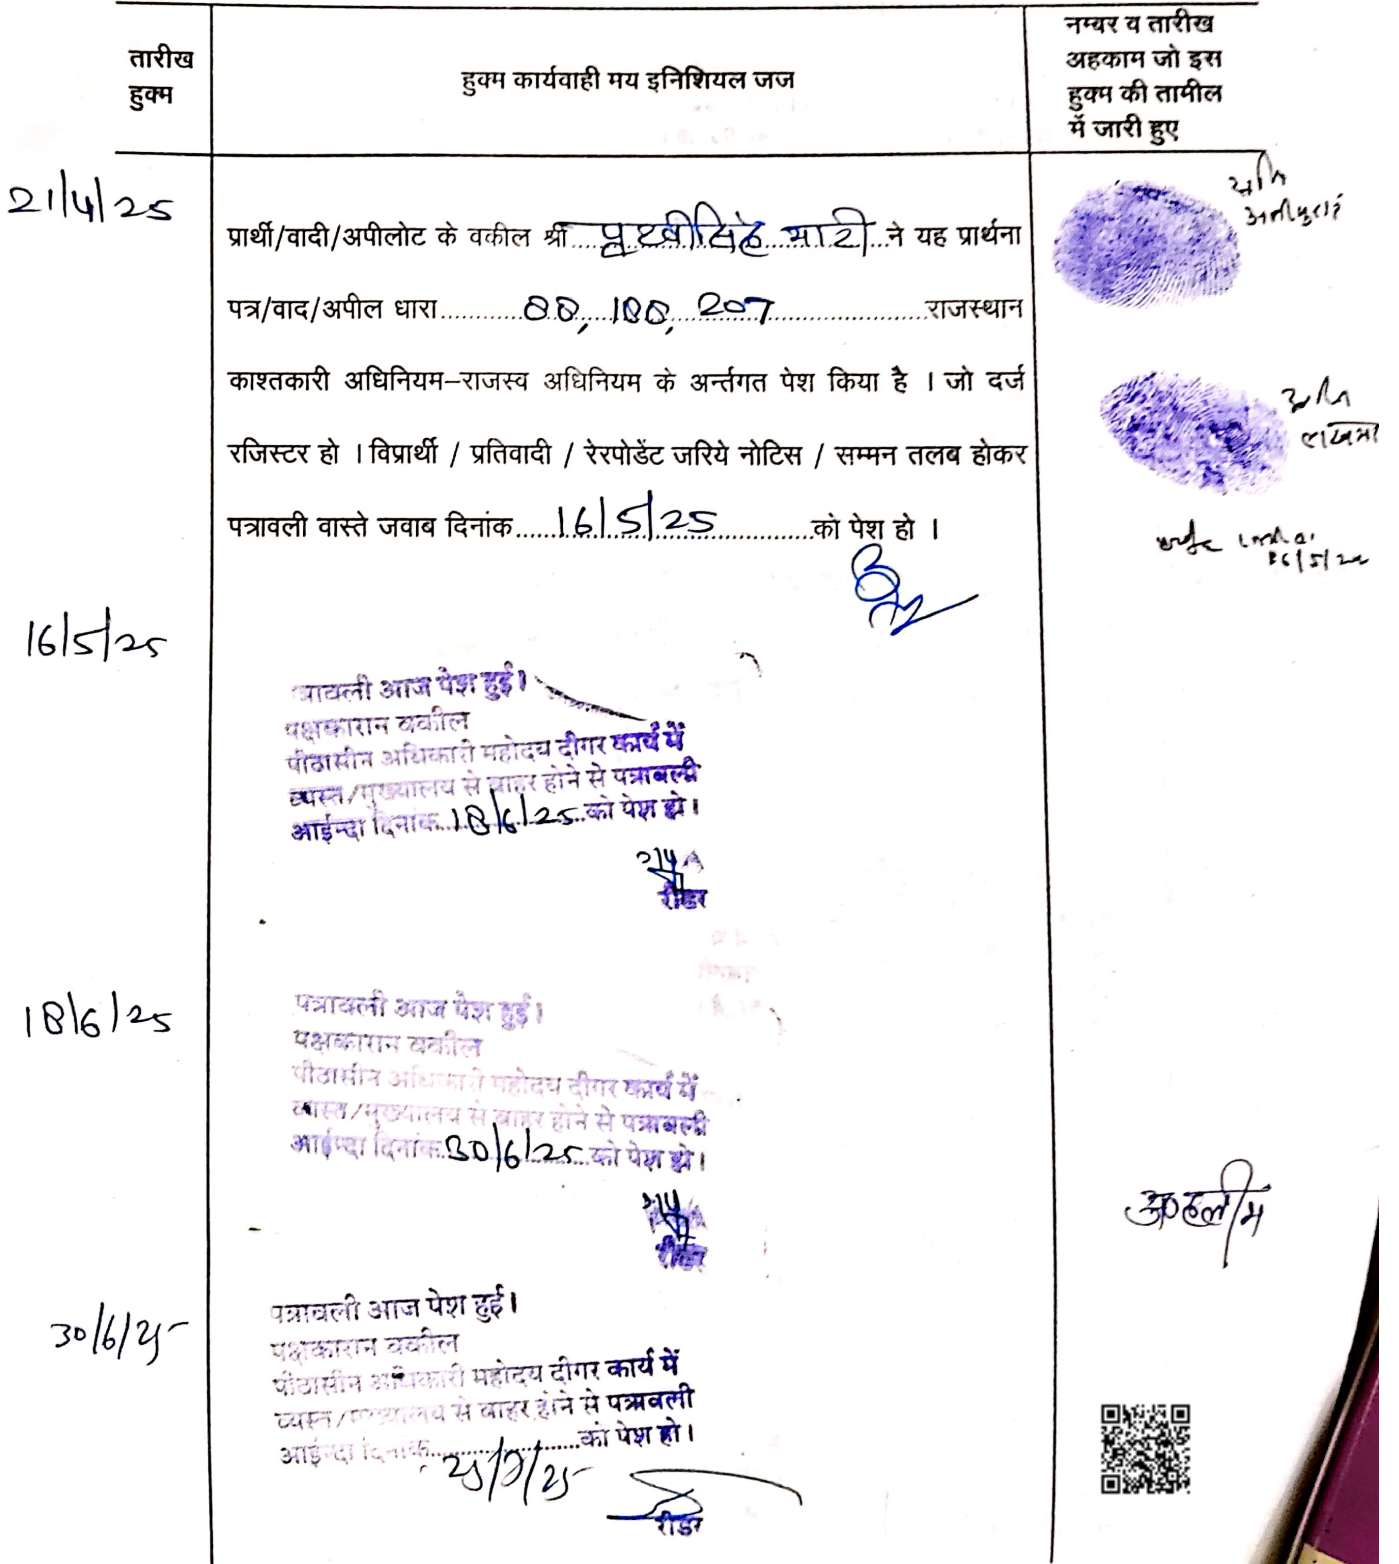 तारीख
हुक्म
हुक्म कार्यवाही मय इनिशियल जज
नम्बर व तारीख
अहकाम जो इस
हुक्म की तामील
में जारी हुए
21/4/25
प्रार्थी/वादी/अपीलोट के वकील श्री....पृथ्वीसिंह भाटी...ने यह प्रार्थना
पत्र/वाद/अपील धारा............88, 188, 207............राजस्थान
काश्तकारी अधिनियम–राजस्व अधिनियम के अर्न्तगत पेश किया है । जो दर्ज
रजिस्टर हो । विप्रार्थी / प्रतिवादी / रेरपोडेंट जरिये नोटिस / सम्मन तलब होकर
पत्रावली वास्ते जवाब दिनांक......16/5/25............को पेश हो ।
16/5/25
त्रावली आज पेश हुई।
पक्षकारान वकील
पीठासीन अधिकारी महोदय दीगर कार्य में
व्यस्त/मुख्यालय से बाहर होने से पत्रावली
आईन्दा दिनांक...18/6/25...को पेश हो।
रीडर
18/6/25
पत्रावली आज पेश हुई।
पक्षकारान वकील
पीठासीन अधिकारी महोदय दीगर कार्य में
व्यस्त/मुख्यालय से बाहर होने से पत्रावली
आईन्दा दिनांक.30/6/25...को पेश हो।
रीडर
30/6/25
पत्रावली आज पेश हुई।
पक्षकारान वकील
पीठासीन अधिकारी महोदय दीगर कार्य में
व्यस्त/मुख्यालय से बाहर होने से पत्रावली
आईन्दा दिनांक....................को पेश हो।
25/7/25
रीडर